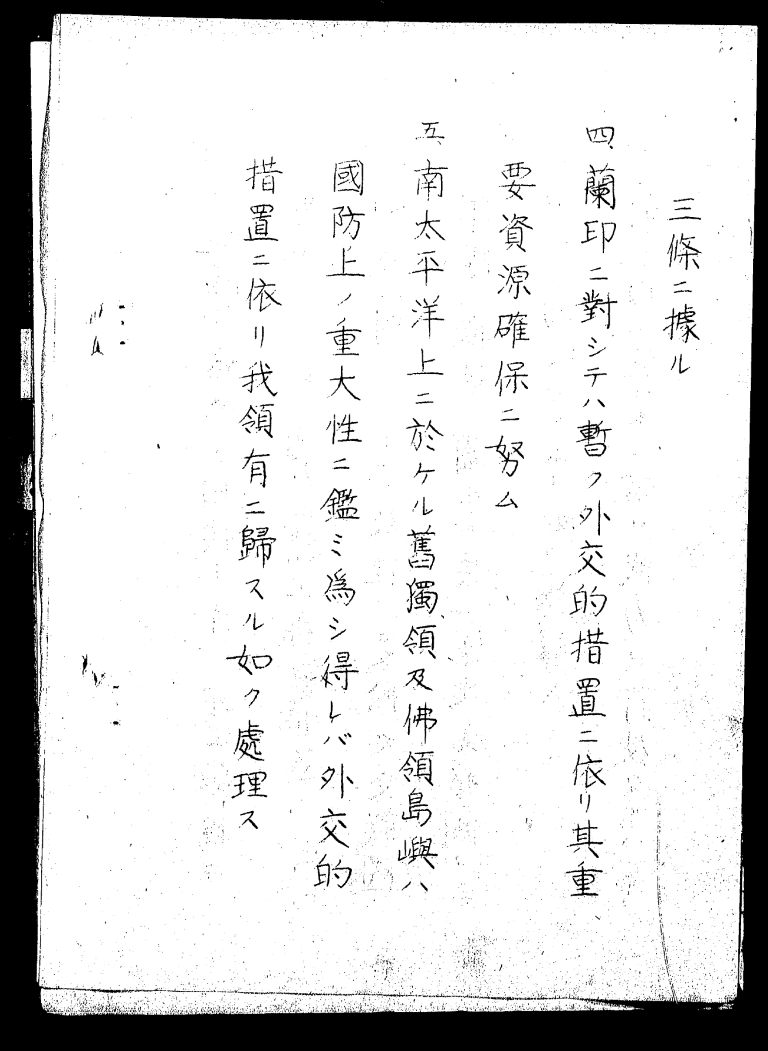 三條ニ據ル
四、蘭印ニ對シテハ暫ク外交的措置ニ依リ其重
要資源確保ニ努ム
五、南太平洋上ニ於ケル舊獨領及佛領島嶼ハ
國防上ノ重大性ニ鑑ミ爲シ得レバ外交的
措置ニ依リ我領有ニ歸スル如ク處理ス